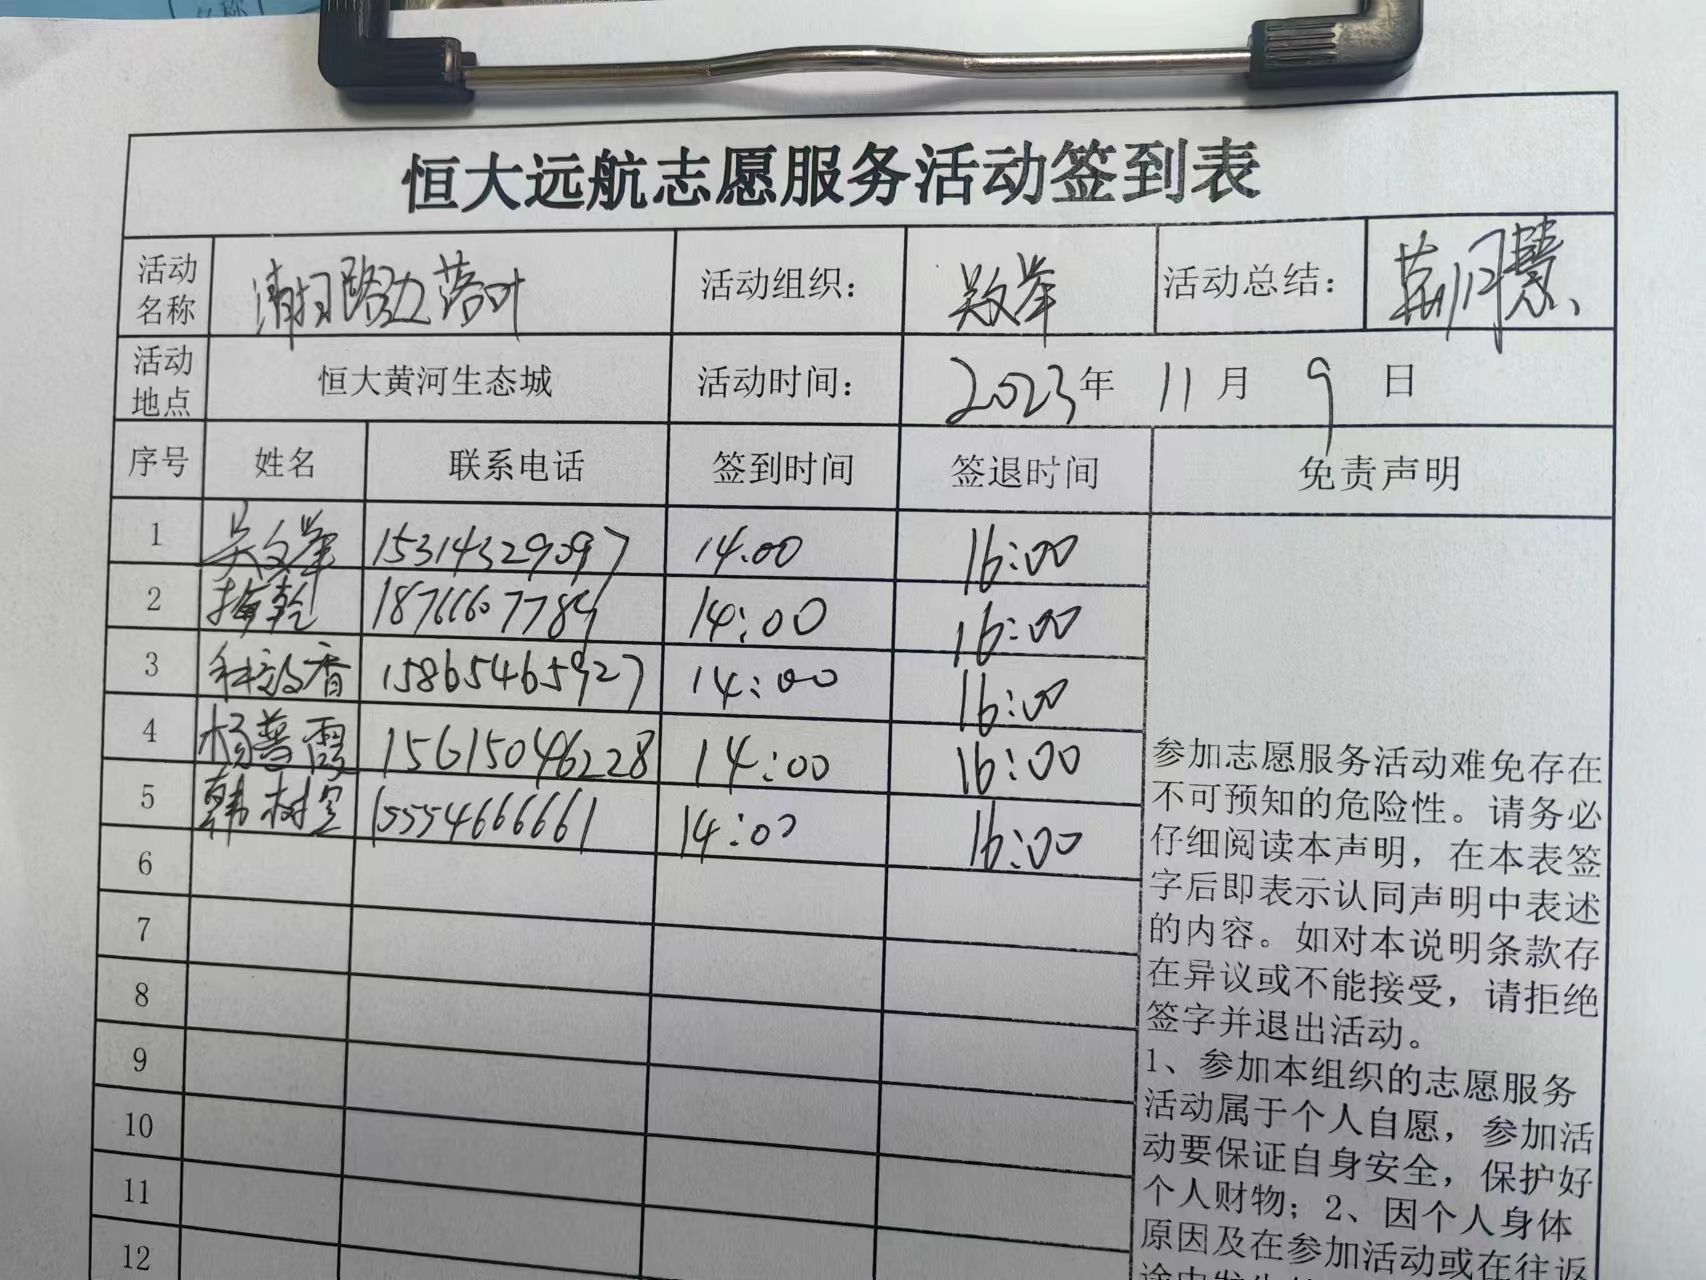 名称
恒大远航志愿服务活动签到表
活动名称 清扫路边落叶 活动组织： 吴文举 活动总结： 月慧
活动地点 恒大黄河生态城 活动时间： 2023年 11月 9日
序号 姓名 联系电话 签到时间 签退时间 免责声明
1 吴文举 15314329097 14:00 16:00
2 18766607789 14:00 16:00
3 香 15865465927 14:00 16:00
4 杨普霞 15615046228 14:00 16:00
5 韩树 15554666661 14:00 16:00
6
7
8
9
10
11
12
参加志愿服务活动难免存在
不可预知的危险性。请务必
仔细阅读本声明，在本表签
字后即表示认同声明中表述
的内容。如对本说明条款存
在异议或不能接受，请拒绝
签字并退出活动。
1、参加本组织的志愿服务
活动属于个人自愿，参加活
动要保证自身安全，保护好
个人财物；2、因个人身体
原因及在参加活动或在往返
途中发生